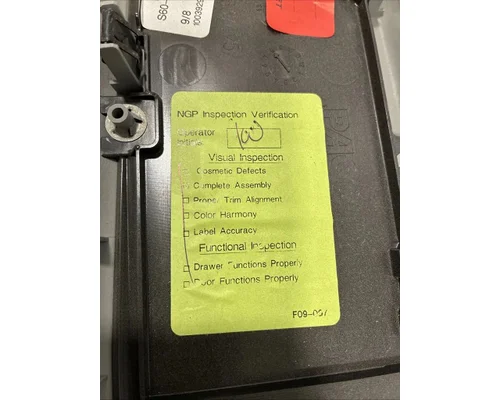 S60-
9/8
1003925
NGP Inspection Verification
Operator
Visual Inspection
Cosmetic Defects
Complete Assembly
Proper Trim Alignment
Color Harmony
Label Accuracy
Functional Inspection
Drawer Functions Properly
Door Functions Properly
F09-037